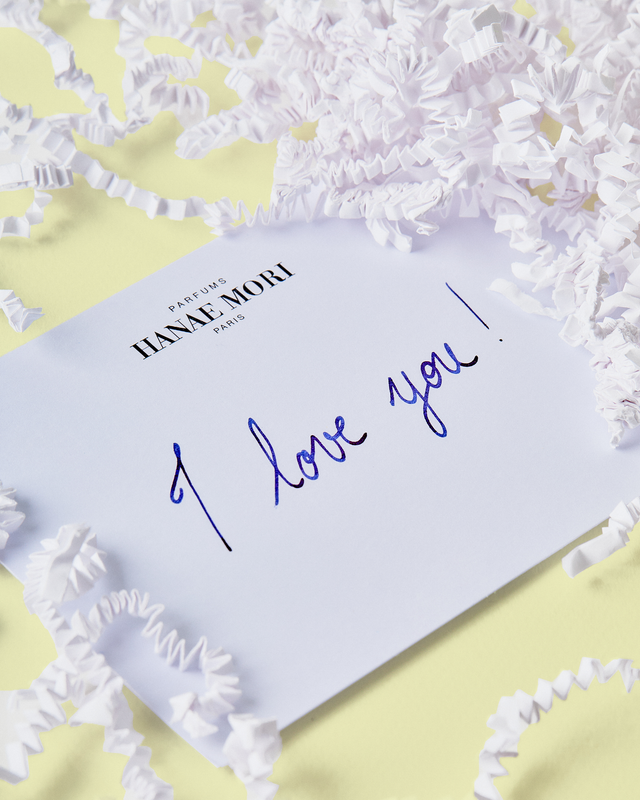 PARFUMS
HANAE MORI
PARIS
I love you!